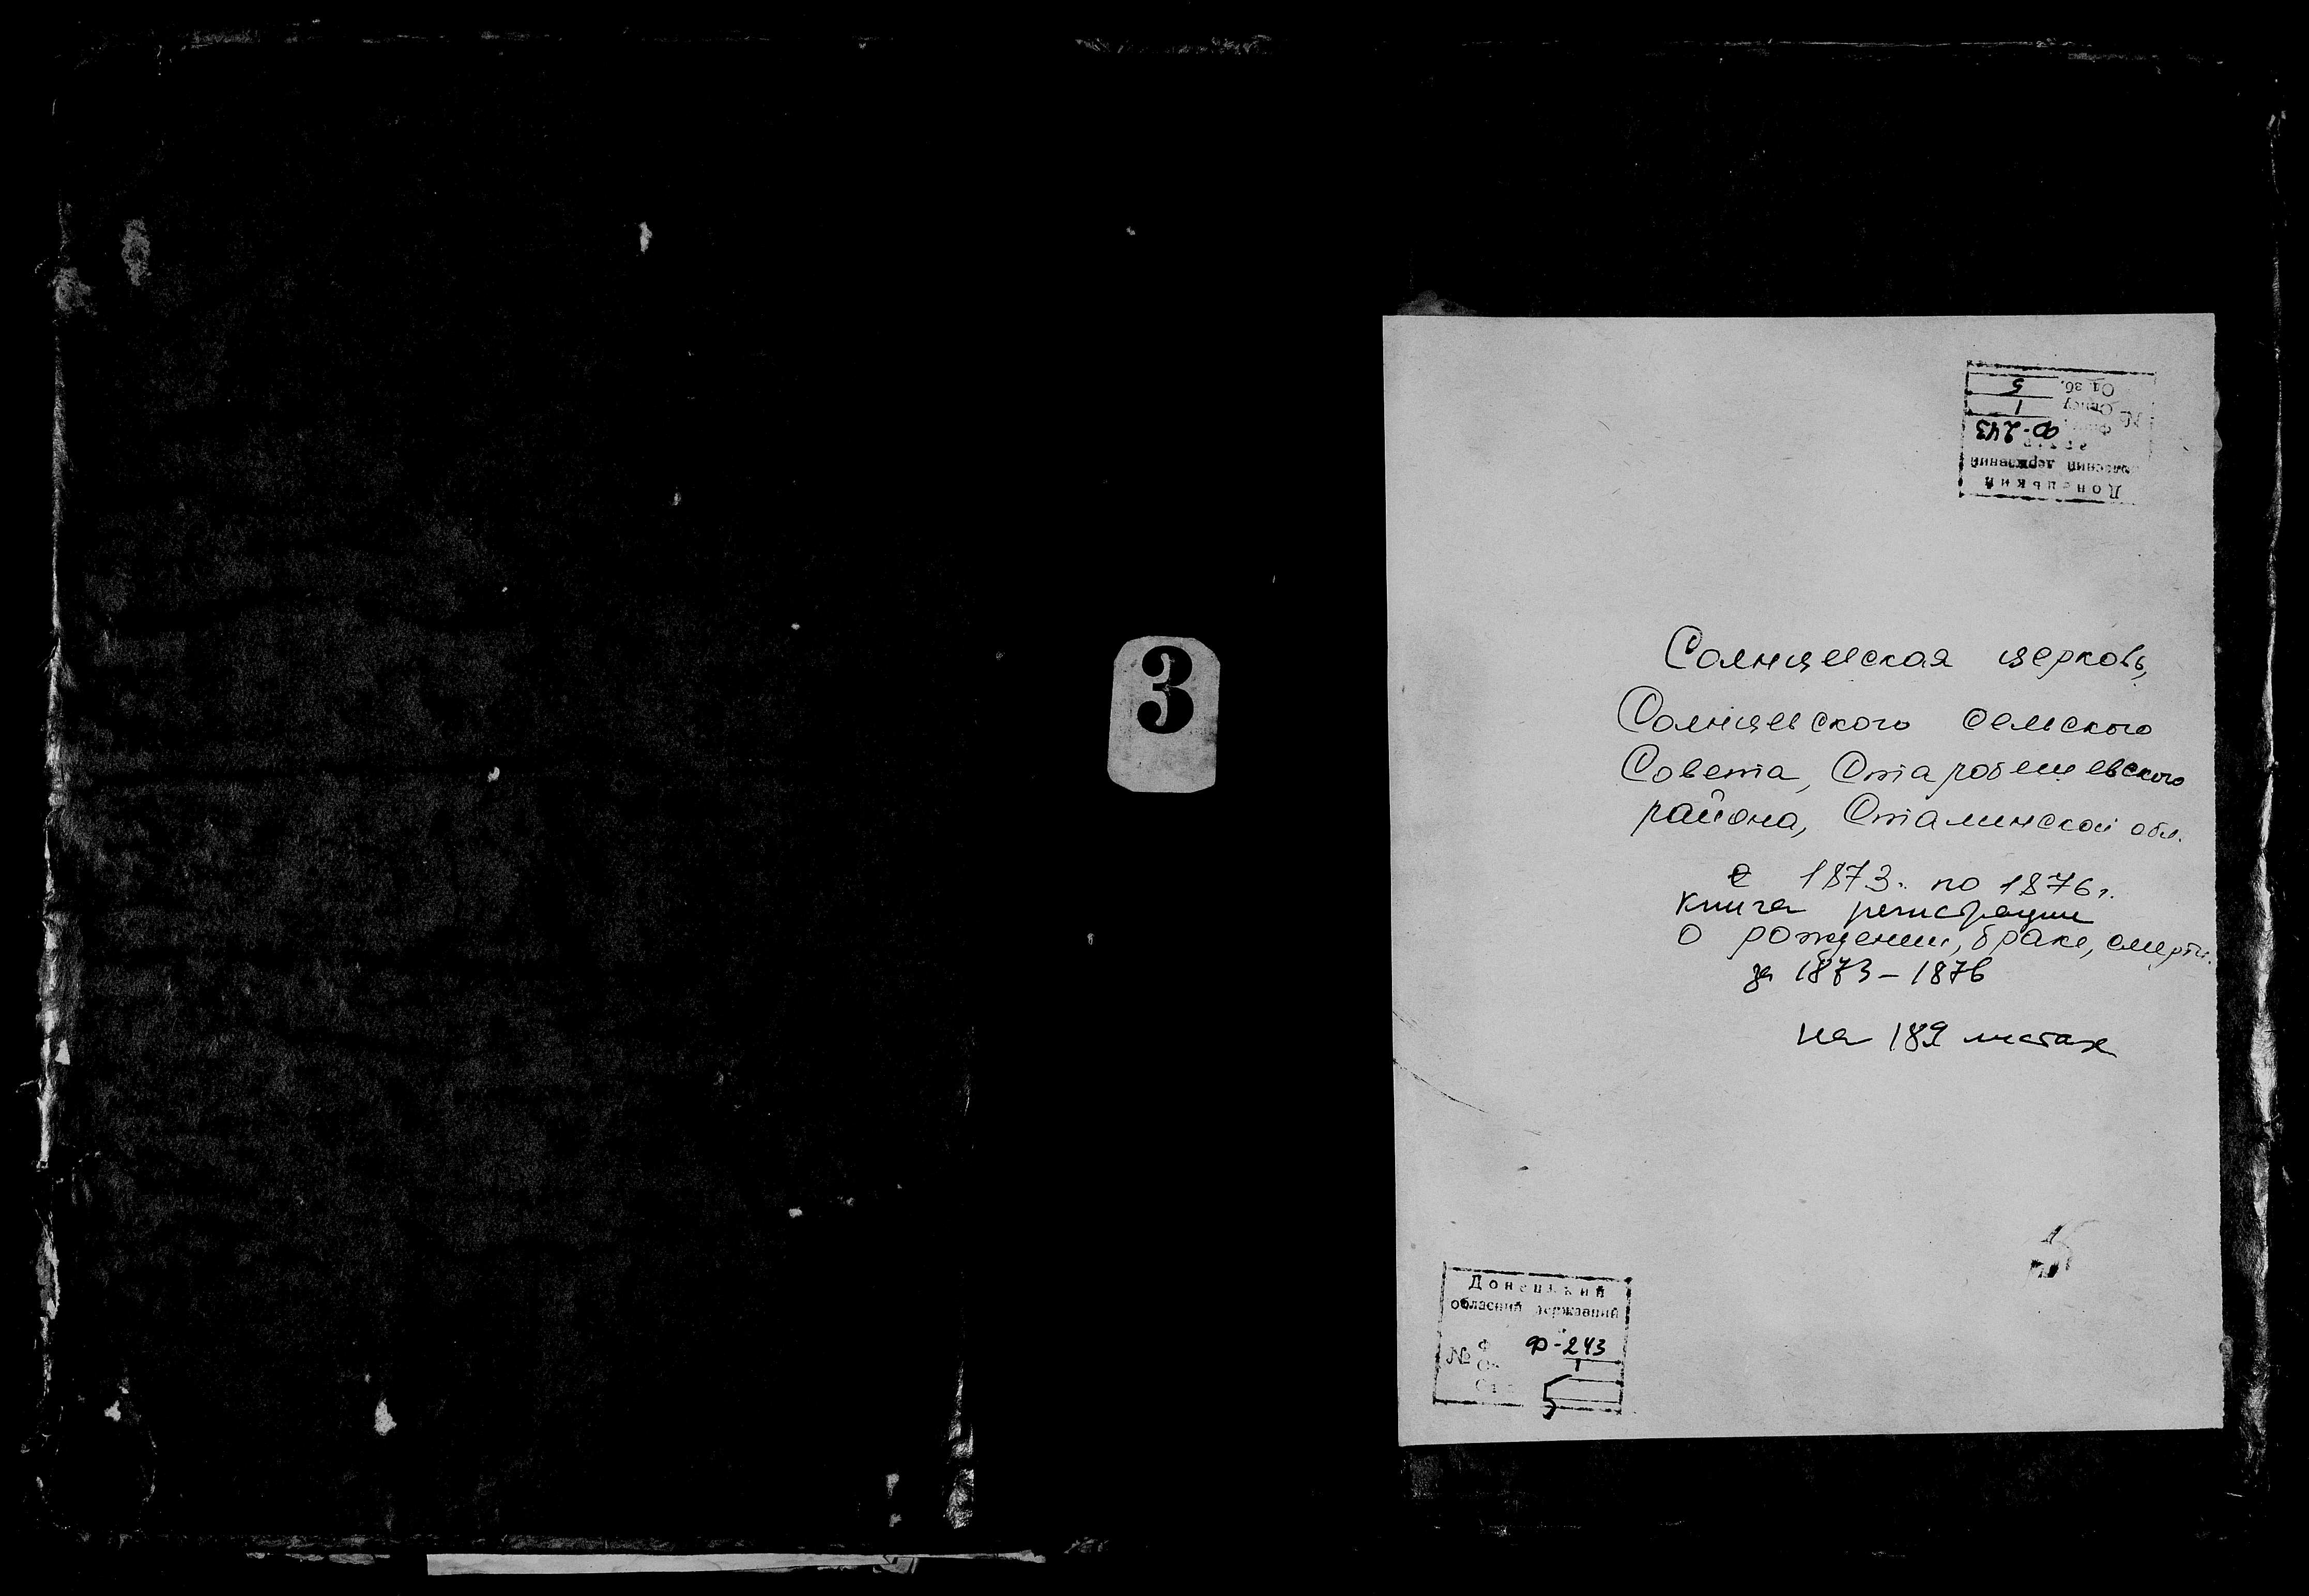 3
Од. зб. 5
№ Опису 1
Ф-243
державний
Донецький
Солнцевская церковь,
Солнцевского сельского
Совета, Старобешевского
района, Сталинской обл.
с 1873г. по 1876г.
книга регистрации
о рождении, браке, смерти.
за 1873-1876
на 189 листах
Донецький
обласний державний
№ Ф-243
1
5